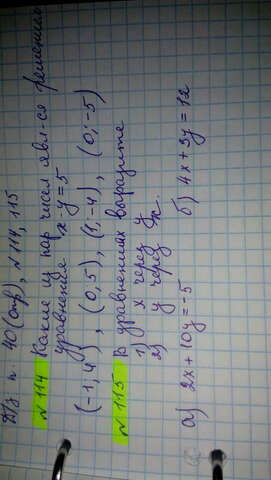 Д/з п. 40 (опр), №114, 115
№114 Какие из пар чисел явл-ся решением
уравнения x-y=5
(-1; 4), (0; 5), (1; -4), (0; -5)
№115 В уравнениях выразите
1) x через y
2) y через x.
а) 2x+10y=-5 б) 4x+3y=12